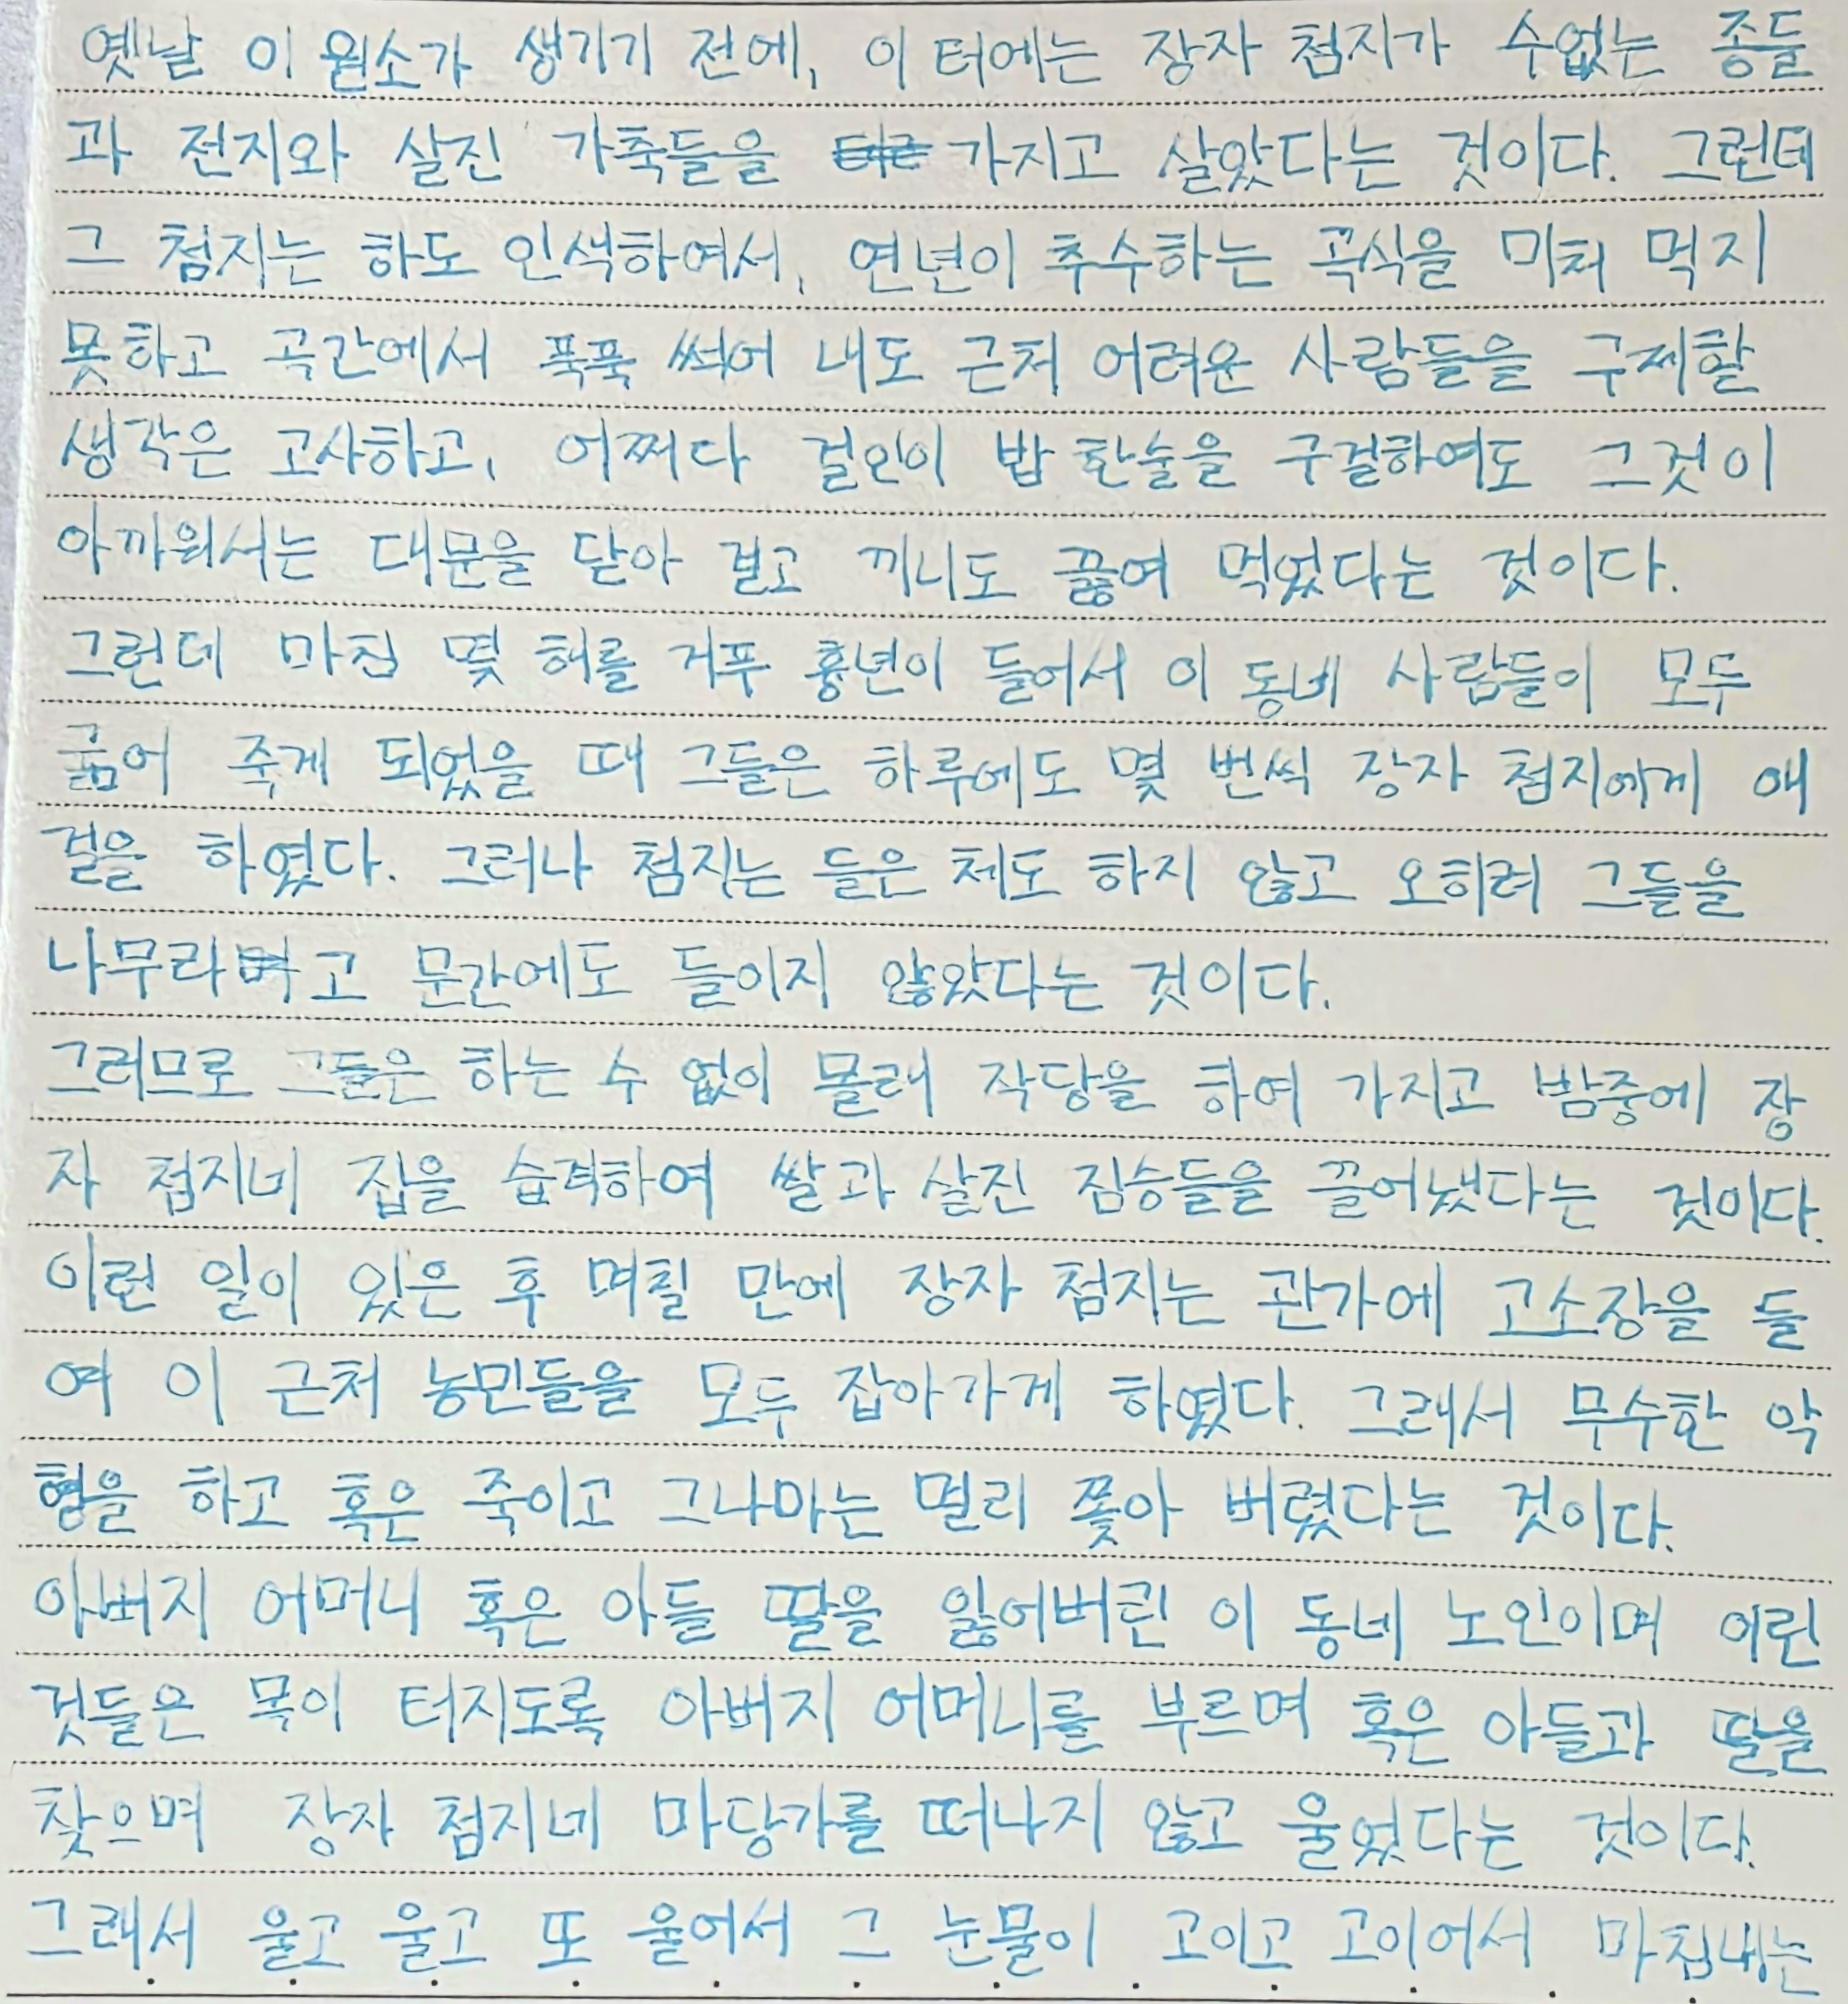 옛날 이 원소가 생기기 전에, 이 터에는 장자 첨지가 수없는 종들
과 전지와 살진 가축들을 가지고 살았다는 것이다. 그런데
그 첨지는 하도 인색하여서, 연년이 추수하는 곡식을 미처 먹지
못하고 곡간에서 푹푹 썩어 내도 근처 어려운 사람들을 구제할
생각은 고사하고, 어쩌다 걸인이 밥 한술을 구걸하여도 그것이
아까워서는 대문을 닫아 걸고 끼니도 끓여 먹었다는 것이다.
그런데 마침 몇 해를 거푸 흉년이 들어서 이 동네 사람들이 모두
굶어 죽게 되었을 때 그들은 하루에도 몇 번씩 장자 첨지에게 애
걸을 하였다. 그러나 첨지는 들은 체도 하지 않고 오히려 그들을
나무라며고 문간에도 들이지 않았다는 것이다.
그러므로 그들은 하는 수 없이 몰래 작당을 하여 가지고 밤중에 장
자 첨지네 집을 습격하여 쌀과 살진 짐승들을 끌어냈다는 것이다.
이런 일이 있은 후 며칠 만에 장자 첨지는 관가에 고소장을 들
여 이 근처 농민들을 모두 잡아가게 하였다. 그래서 무수한 악
형을 하고 혹은 죽이고 그나마는 멀리 쫓아 버렸다는 것이다.
아버지 어머니 혹은 아들 딸을 잃어버린 이 동네 노인이며 어린
것들은 목이 터지도록 아버지 어머니를 부르며 혹은 아들과 딸을
찾으며 장자 첨지네 마당가를 떠나지 않고 울었다는 것이다.
그래서 울고 울고 또 울어서 그 눈물이 고이고 고이어서 마침내는